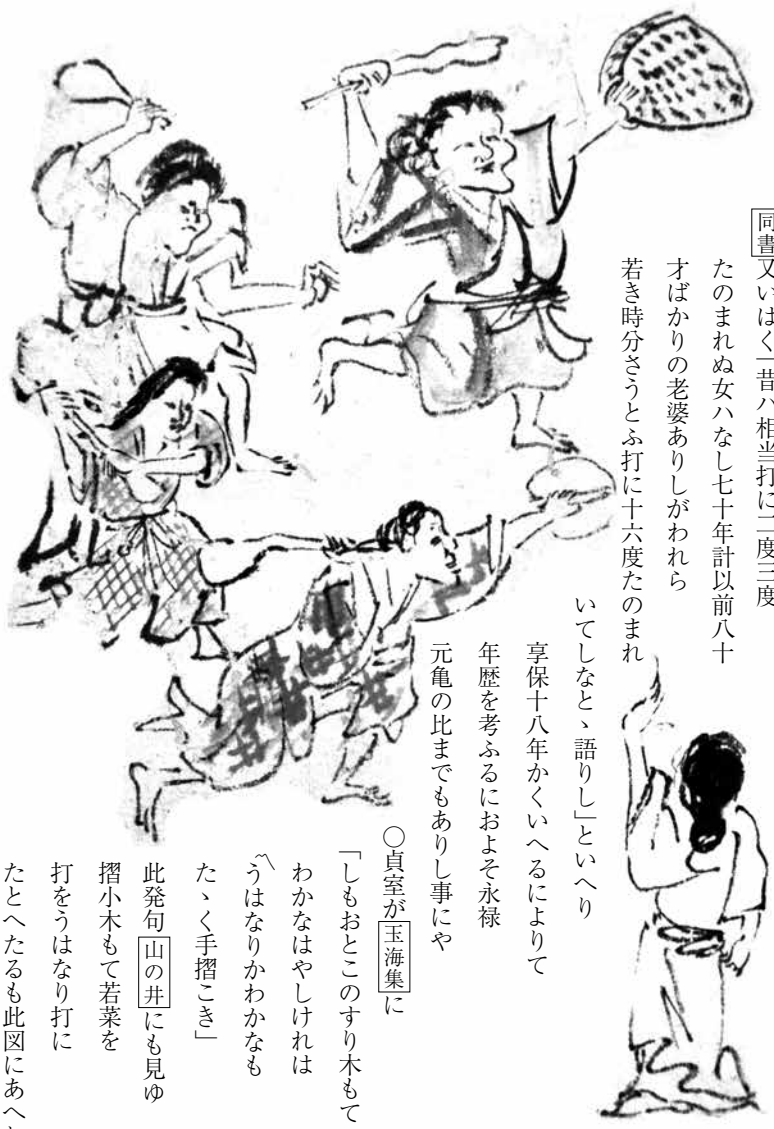 同書又いはく「昔ハ相当打に二度三度
たのまれぬ女ハなし七十年計以前八十
才ばかりの老婆ありしがわれら
若き時分さうとふ打に十六度たのまれ
いてしなとゝ語りし」といへり
享保十八年かくいへるによりて
年歴を考ふるにおよそ永禄
元亀の比までもありし事にや
〇貞室が玉海集に
「しもおとこのすり木もて
わかなはやしけれは
〽うはなりかわかなも
たゝく手摺こき」
此発句山の井にも見ゆ
摺小木もて若菜を
打をうはなり打に
たとへたるも此図にあへ